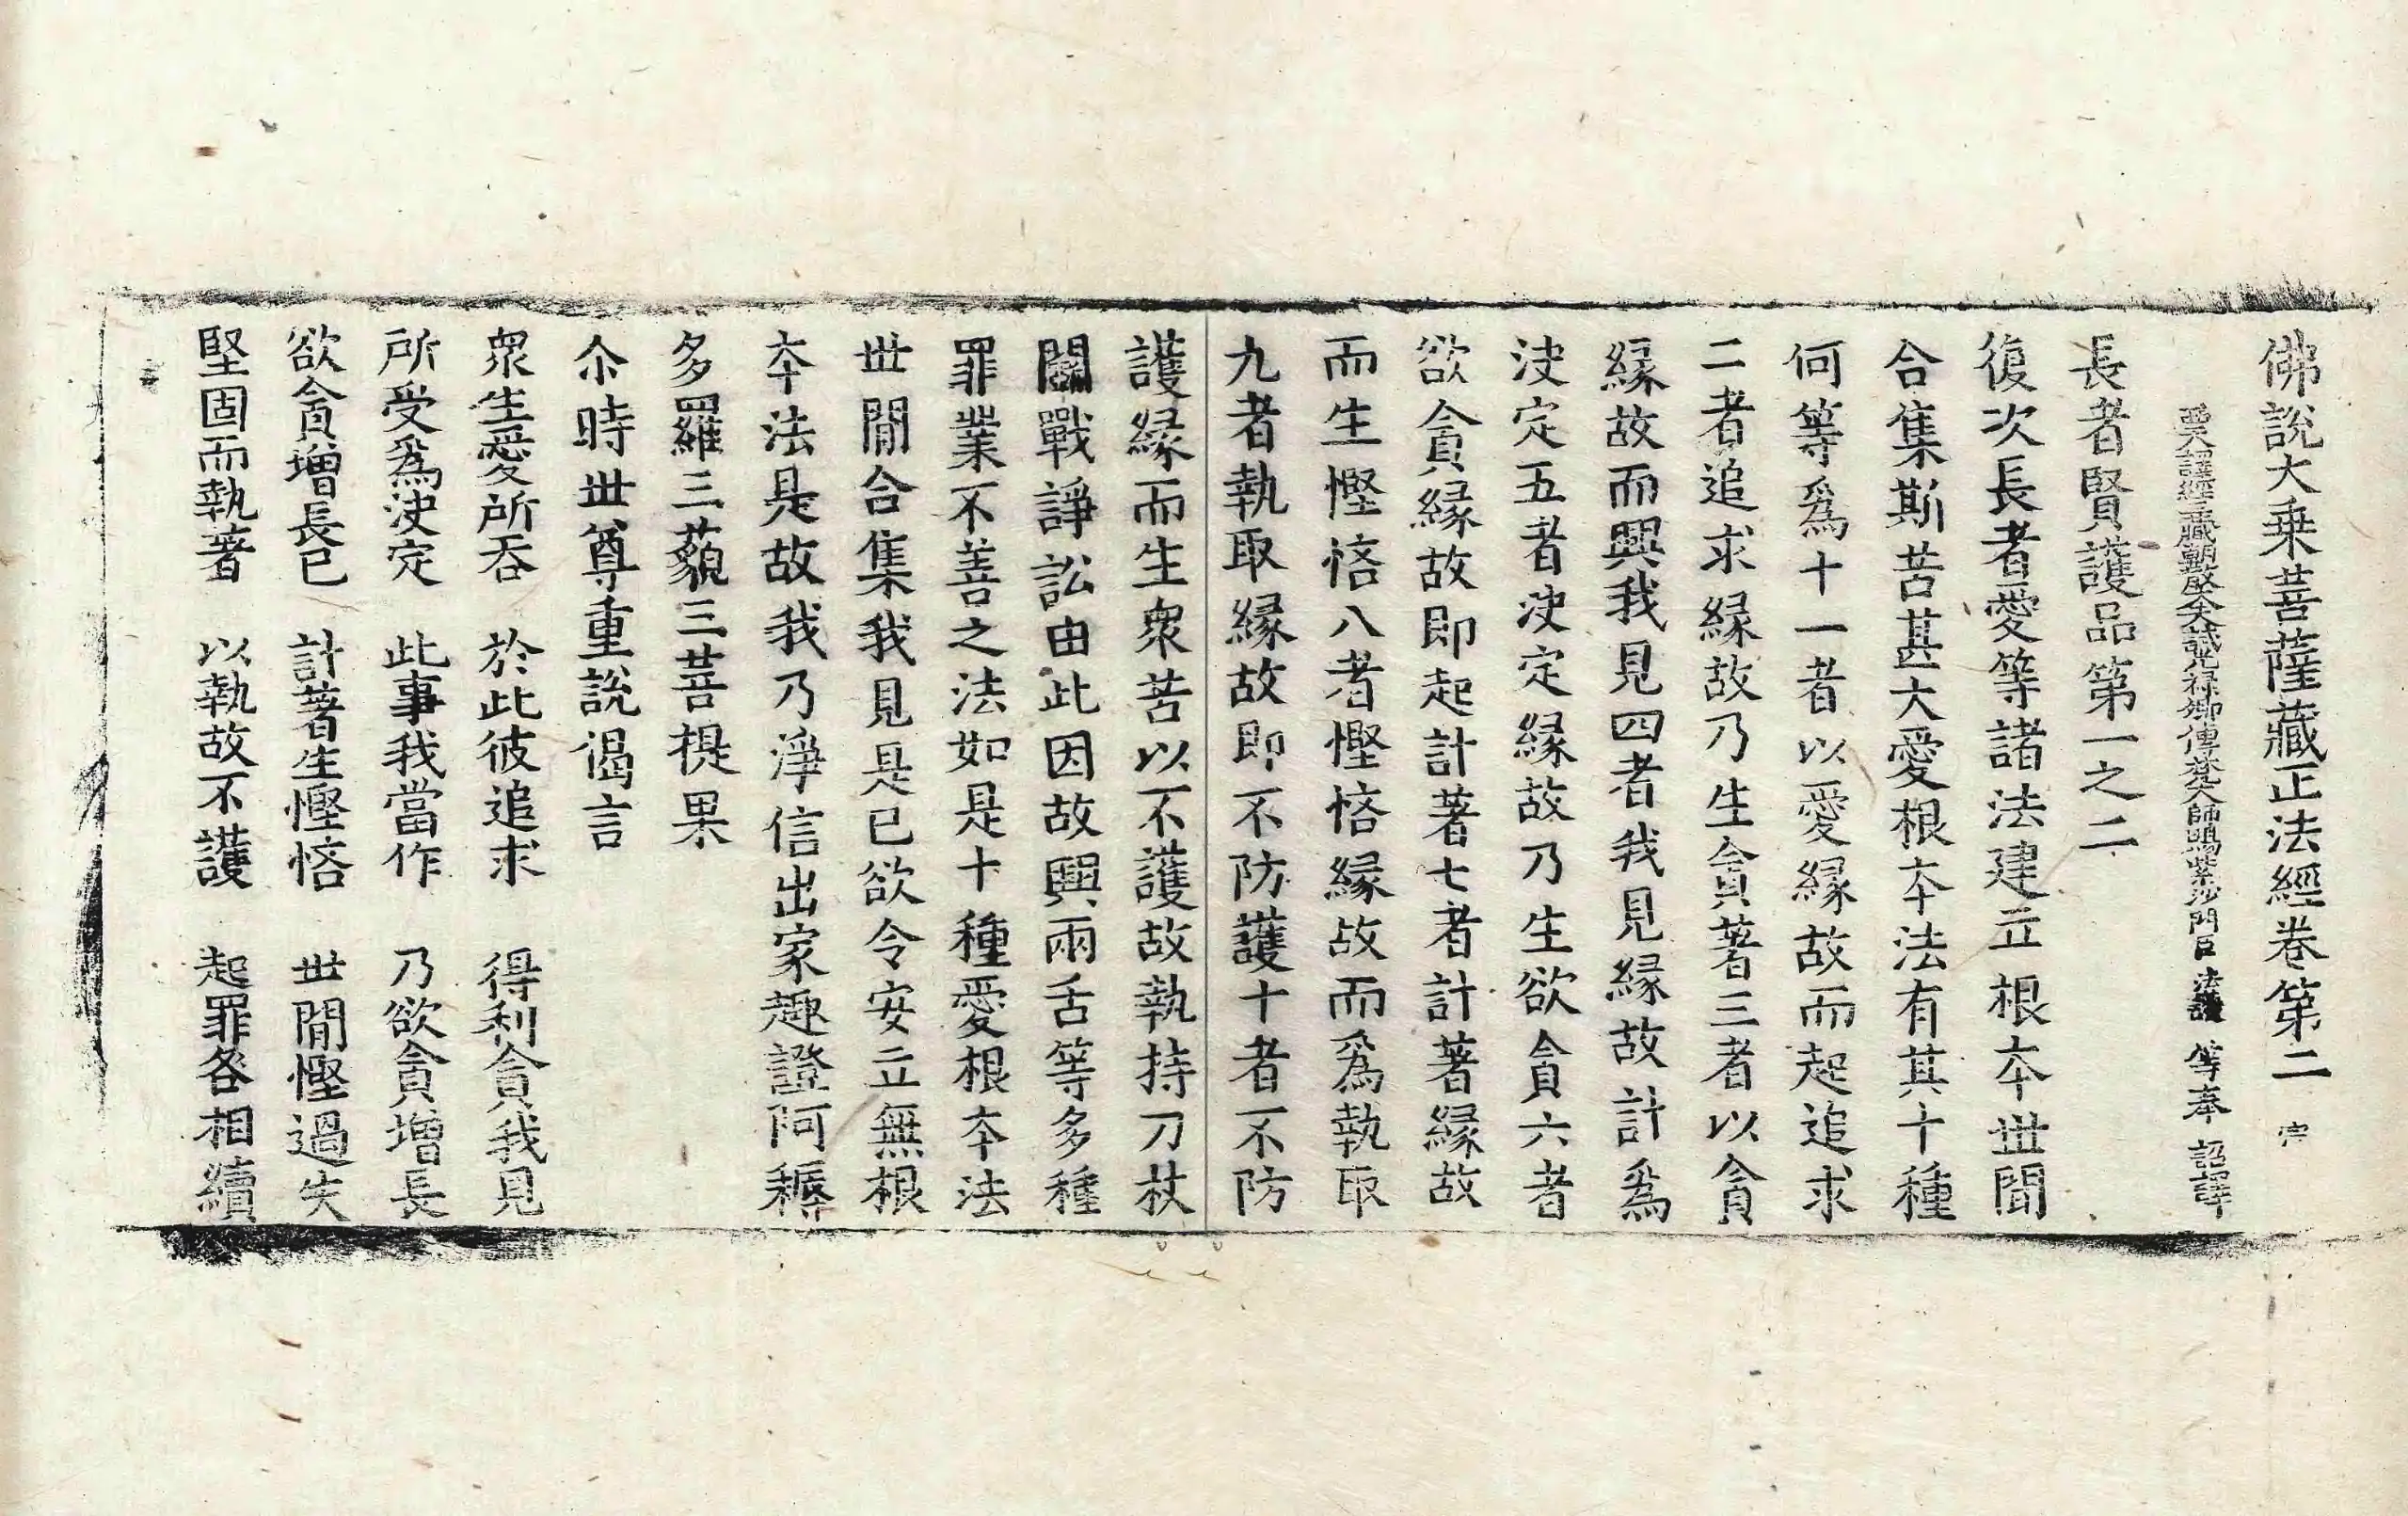 佛說大乗菩薩藏正法經卷第二 宂
西天譯經三藏朝散大夫試光祿卿傳梵大師賜紫沙門臣法護 等奉 詔譯
長者賢護品第一之二
復次長者愛等諸法建立根本世間
合集斯苦甚大愛根本法有其十種
何等爲十一者以愛縁故而起追求
二者追求縁故乃生貪著三者以貪
縁故而興我見四者我見縁故計爲
決定五者決定縁故乃生欲貪六者
欲貪縁故即起計著七者計著縁故
而生慳悋八者慳悋縁故而爲執取
九者執取縁故即不防護十者不防
護縁而生衆苦以不護故執持刀杖
鬭戰諍訟由此因故興兩舌等多種
罪業不善之法如是十種愛根本法
世間合集我見是已欲令安立無根
本法是故我乃淨信出家趣證阿耨
多羅三藐三菩提果
尒時世尊重說偈言
衆生愛所吞 於此彼追求 得利貪我見
所受爲決定 此事我當作 乃欲貪增長
欲貪增長已 計著生慳悋 世間慳過失
堅固而執著 以執故不護 起罪各相續